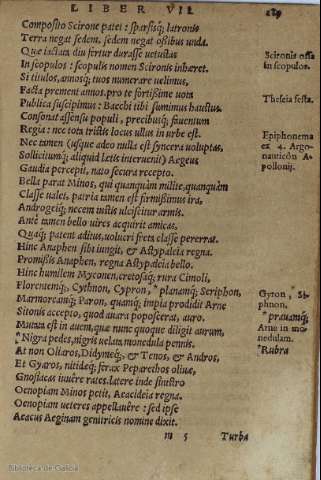 LIBER VII. 189
Composito Scirone patet: sparsisq; latronis
Terra negat sedem, sedem negat oßibus unda.
Quæ iactata diu fertur durasse uetustas
In scopulos: scopulis nomen Scironis inhæret.
Si titulos, annosq; tuos numerare uelimus,
Facta prement annos. pro te fortißime uota
Publica suscipimus: Bacchi tibi sumimus haustus.
Consonat assensu populi, precibusq; fauentum
Regia: nec tota tristis locus ullus in urbe est.
Nec tamen (usque adeo nulla est syncera uoluptas,
Sollicitumq; aliquid lætis interuenit) Aegeus
Gaudia percepit, nato secura recepto.
Bella parat Minos, qui quanquàm milite, quanquàm
Classe ualet, patria tamen est firmißimus ira,
Androgeiq; necem iustis ulciscitur armis.
Antè tamen bello uires acquirit amicas,
Quaq; patent aditus, uolucri freta classe pererrat.
Hinc Anaphen sibi iungit, & Astypaleia regna.
Promißis Anaphen, regna Astypaleia bello.
Hinc humilem Myconen, cretosaq; rura Cimoli,
Florentemq; Cythnon, Cypron, *planamq; Seriphon,
Marmoreamq; Paron, quamq; impia prodidit Arne
Sitonis accepto, quod auara poposcerat, auro.
Mutata est in auem, quæ nunc quoque diligit aurum,
*Nigra pedes, nigris uelata monedula pennis.
At non Oliaros, Didymeq;, & Tenos, & Andros,
Et Gyaros, nitideq; ferax Peparethos oliuæ,
Gnosiacas iuuêre rates. latere inde sinistro
Oenopiam Minos petit, Aeacideia regna.
Oenopiam ueteres appellauêre: sed ipse
Aeacus Aeginam genitricis nomine dixit.
m 5 Turba
Scironis ossa
in scopulos.
Theseia festa.
Epiphonema
ex 4. Argo-
nauticôn A-
pollonij.
Gyron, Si-
phnon.
*prauamq;
Arne in mo-
nedulam.
*Rubra
Biblioteca de Galicia